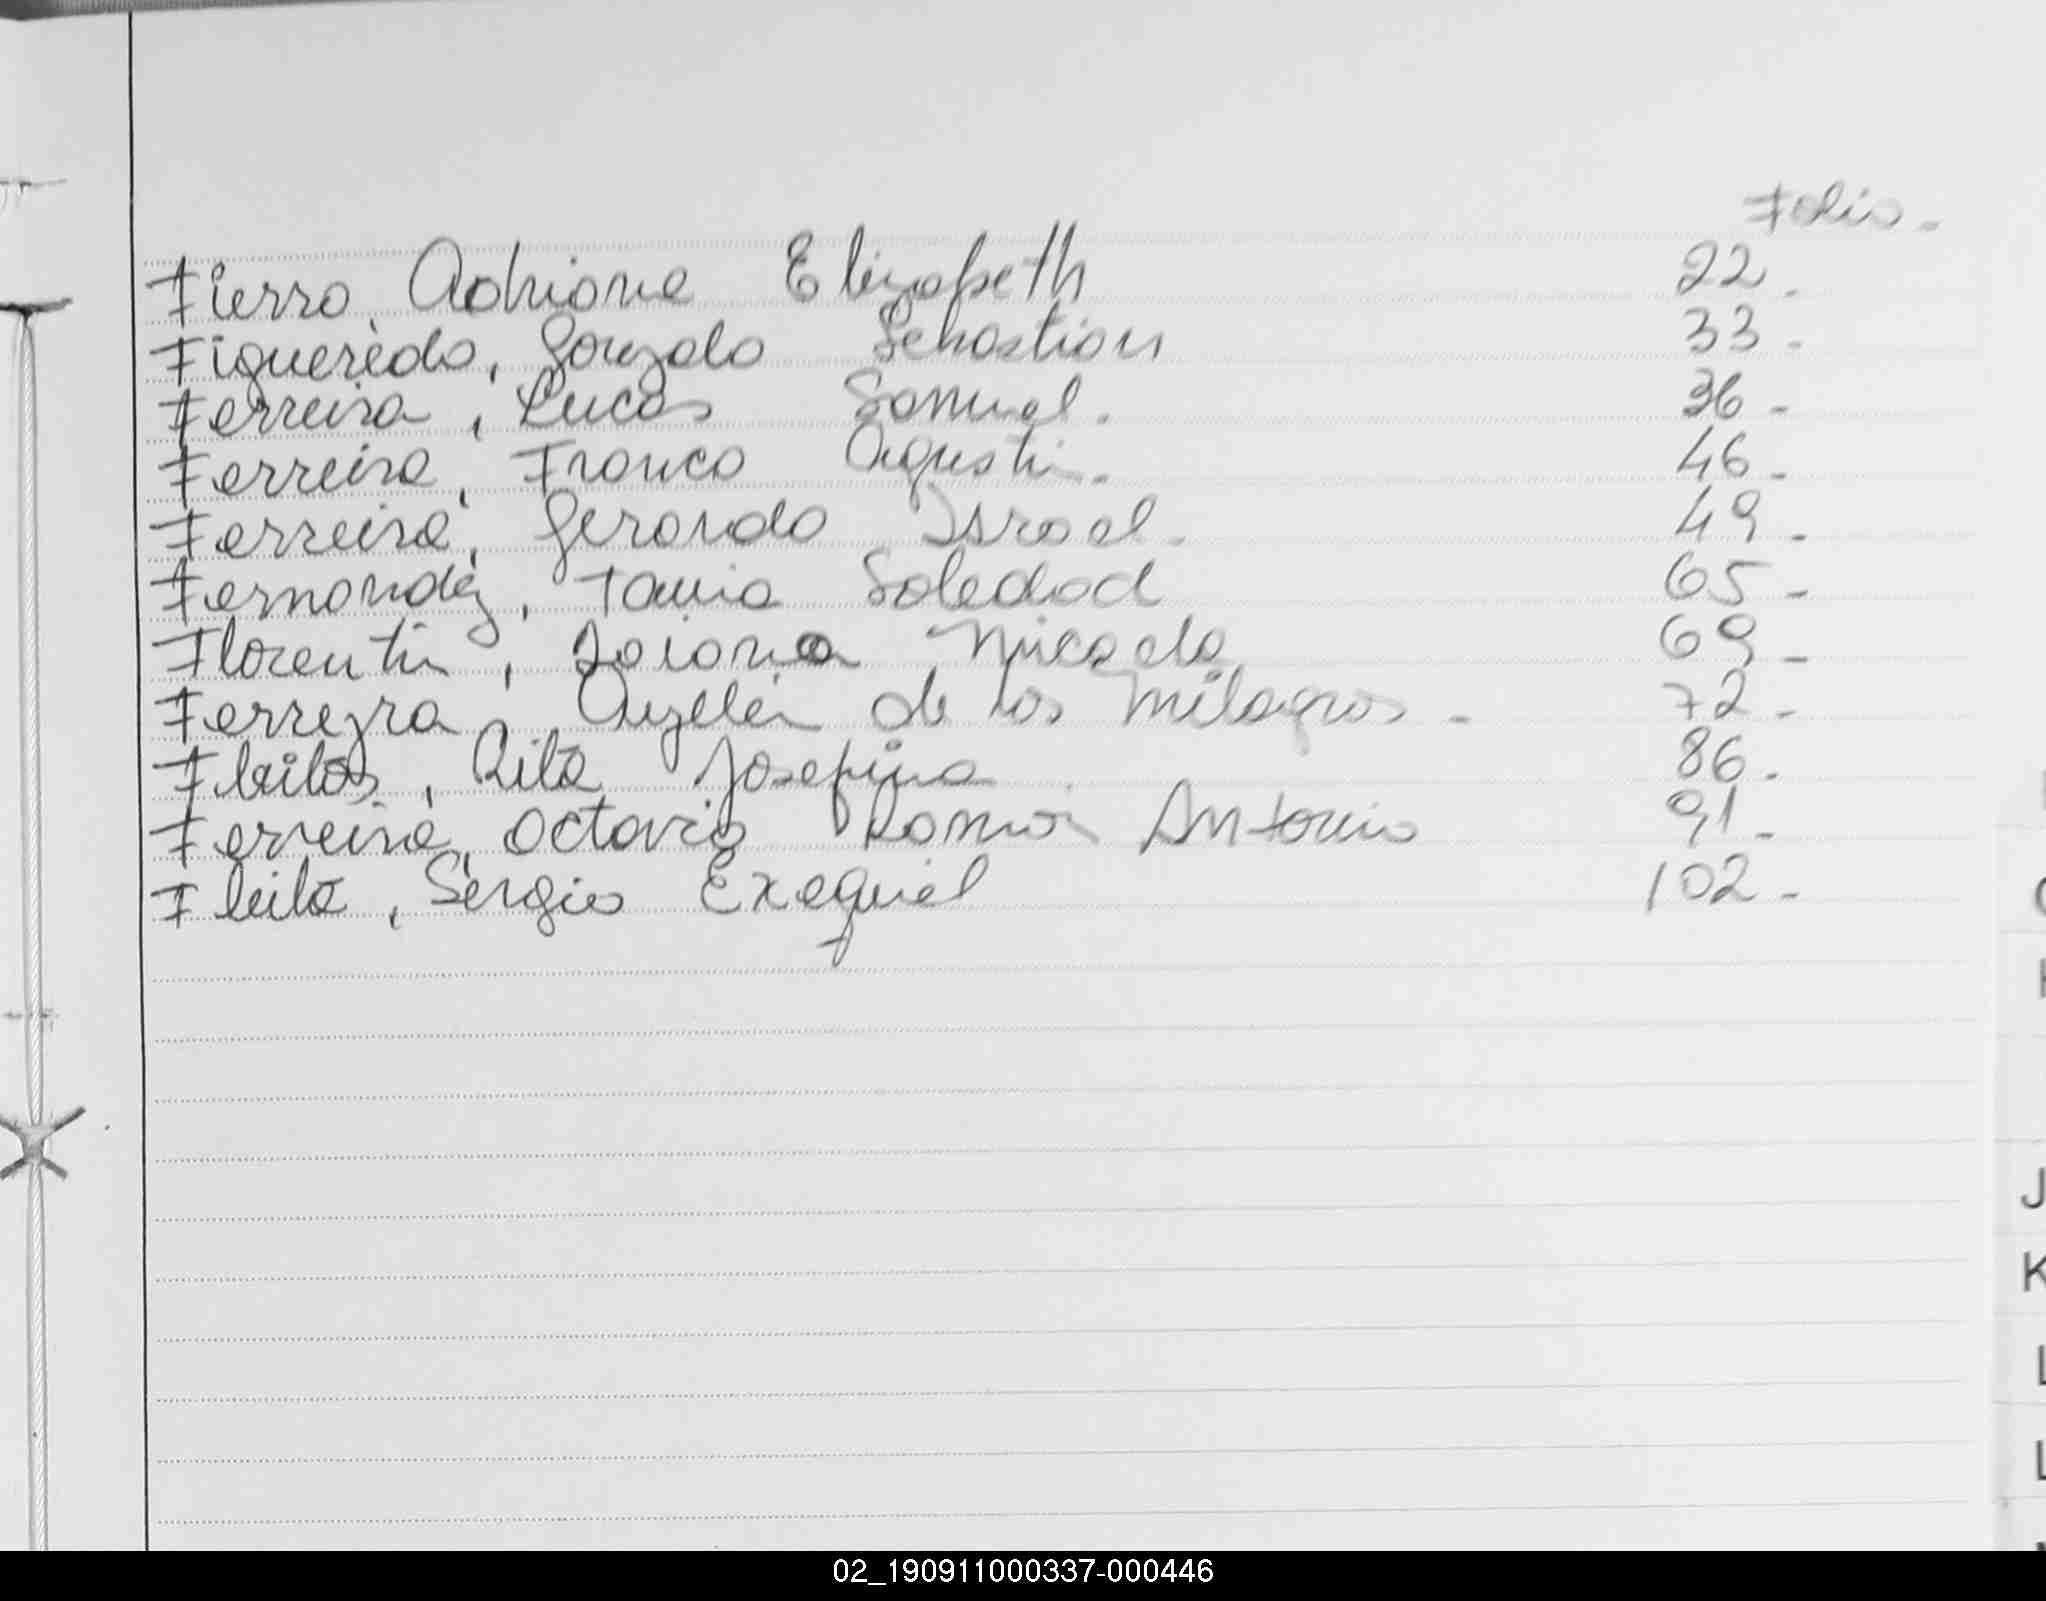 Folio.
Fierro, Adriana Elizabeth 22.
Figueredo, Gonzalo Sebastian 33.
Ferreira, Lucas Samuel. 36.
Ferreira, Franco Agustin. 46.
Ferreira, Gerardo Israel. 49.
Fernandez, Tania Soledad 65.
Florentin, Daiana Micaela 69.
Ferreyra, Ayelén de los Milagros. 72.
Fleitas, Rita Josefina 86.
Ferreira, Octavio Ramón Antonio 91.
Fleita, Sergio Exequiel 102.
J
K
L
L
02_190911000337-000446